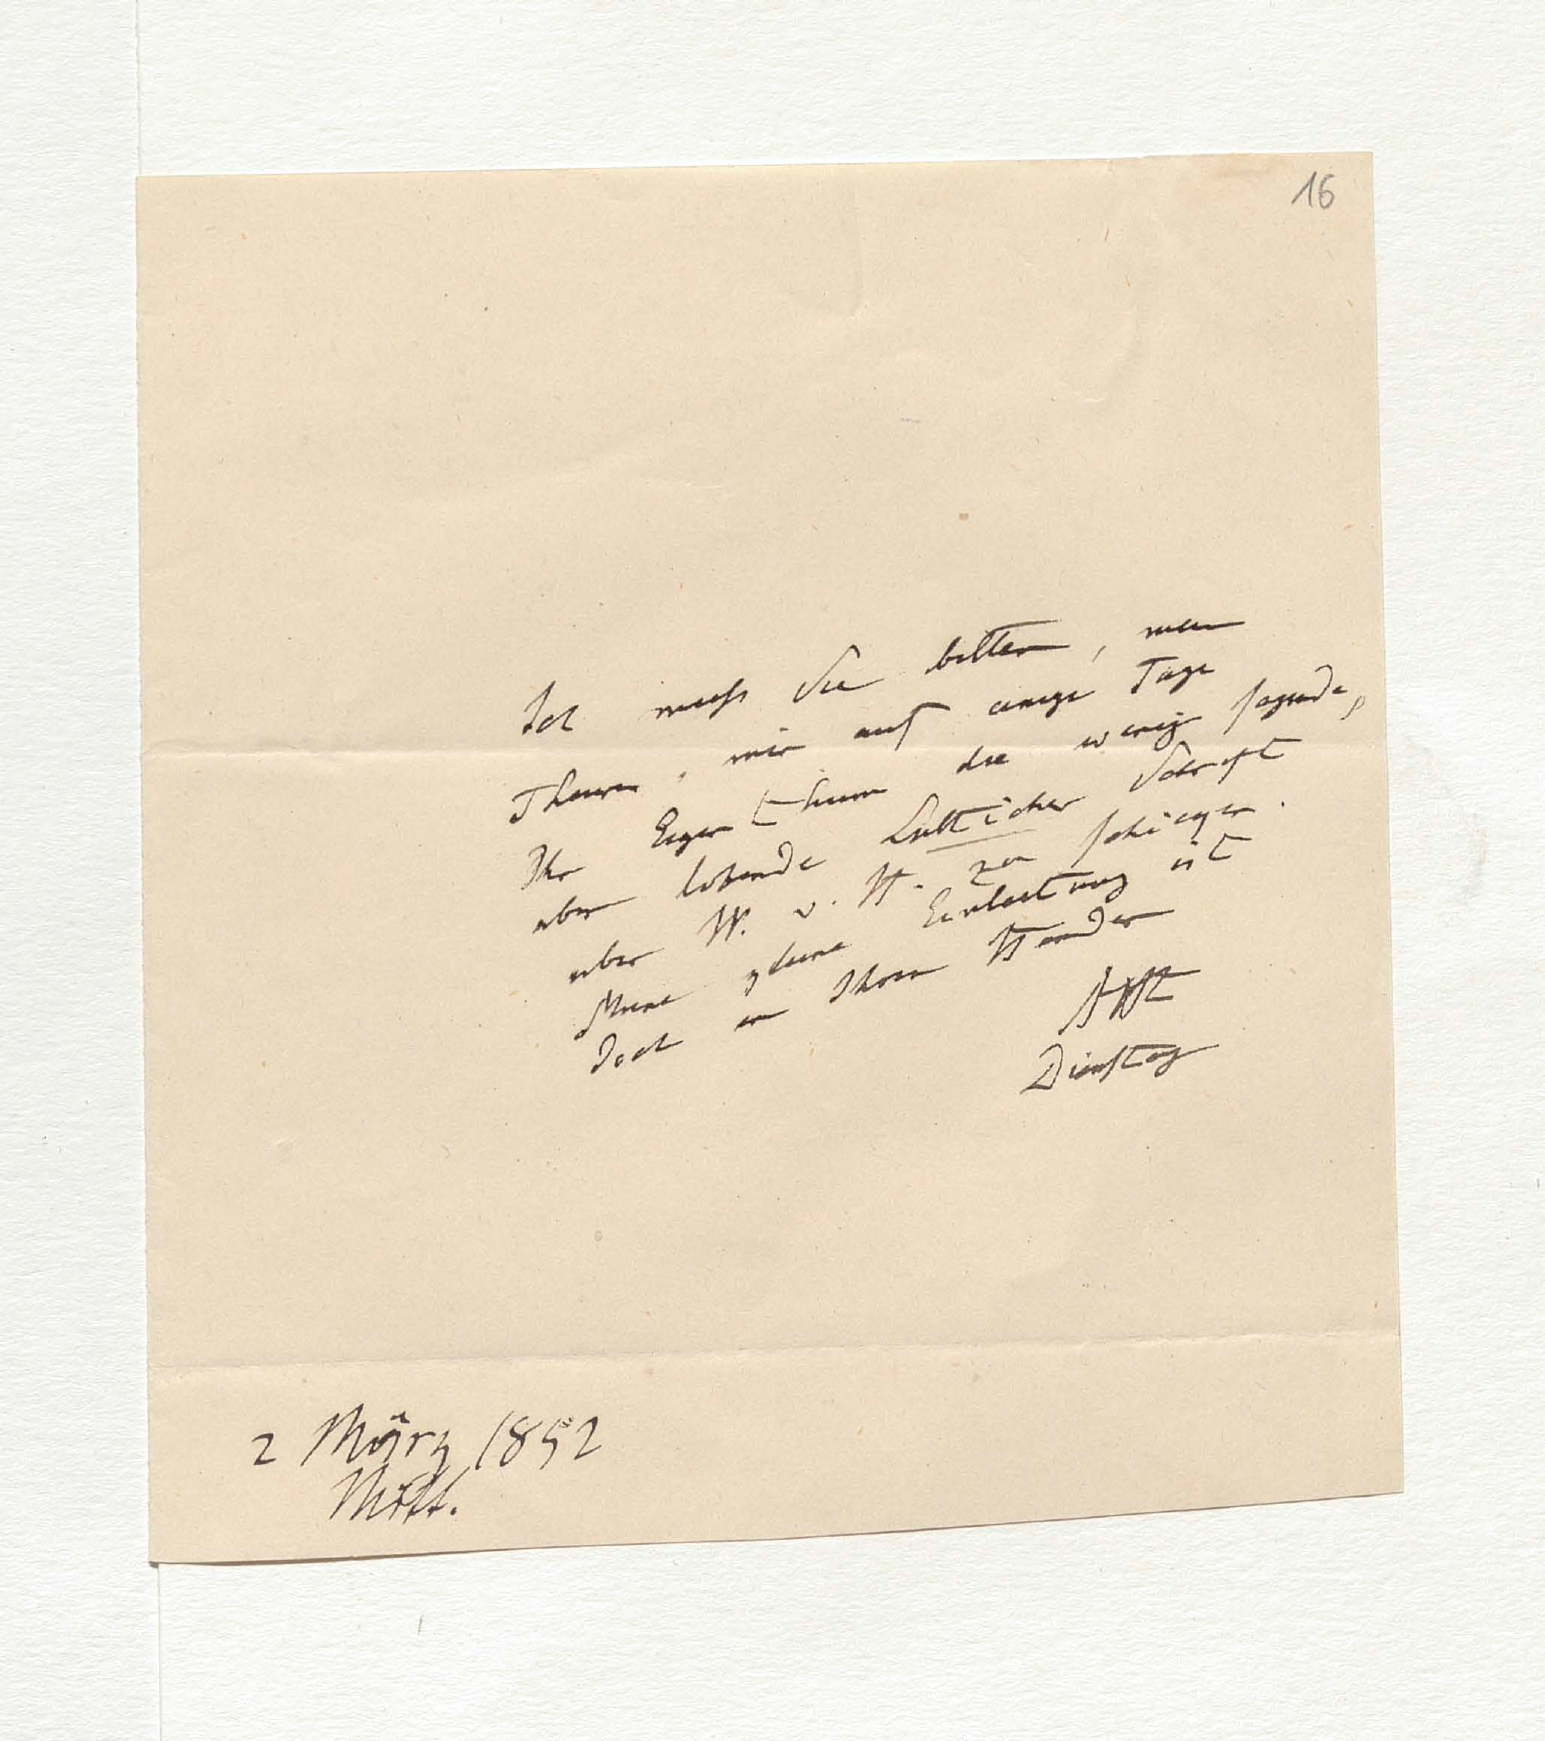 16
Ich muss Sie bitten, mein
Theurer, mir auf einige Tage
Ihr Eigenthum die wenig sagende,
aber lobende Lütticher Schrift
über W. v. H. zu schicken.
Meine kleine Einleitung ist
doch in Ihren Händen
AHt
Dienstag
2 März 1852
Mitt.